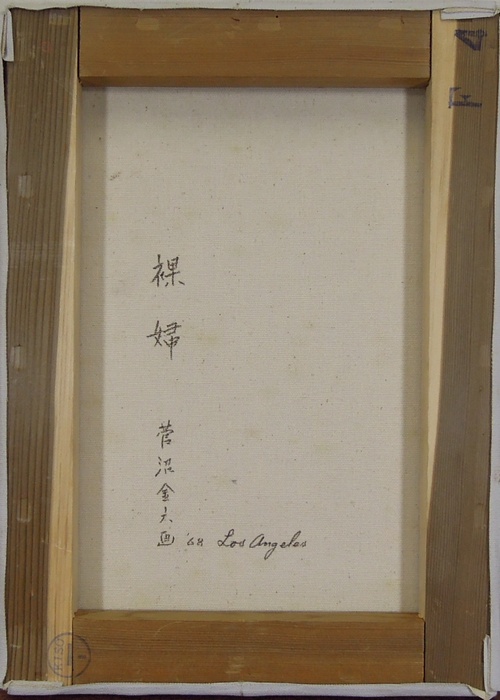 裸婦
菅沼金六画 '68 Los Angeles
F 4